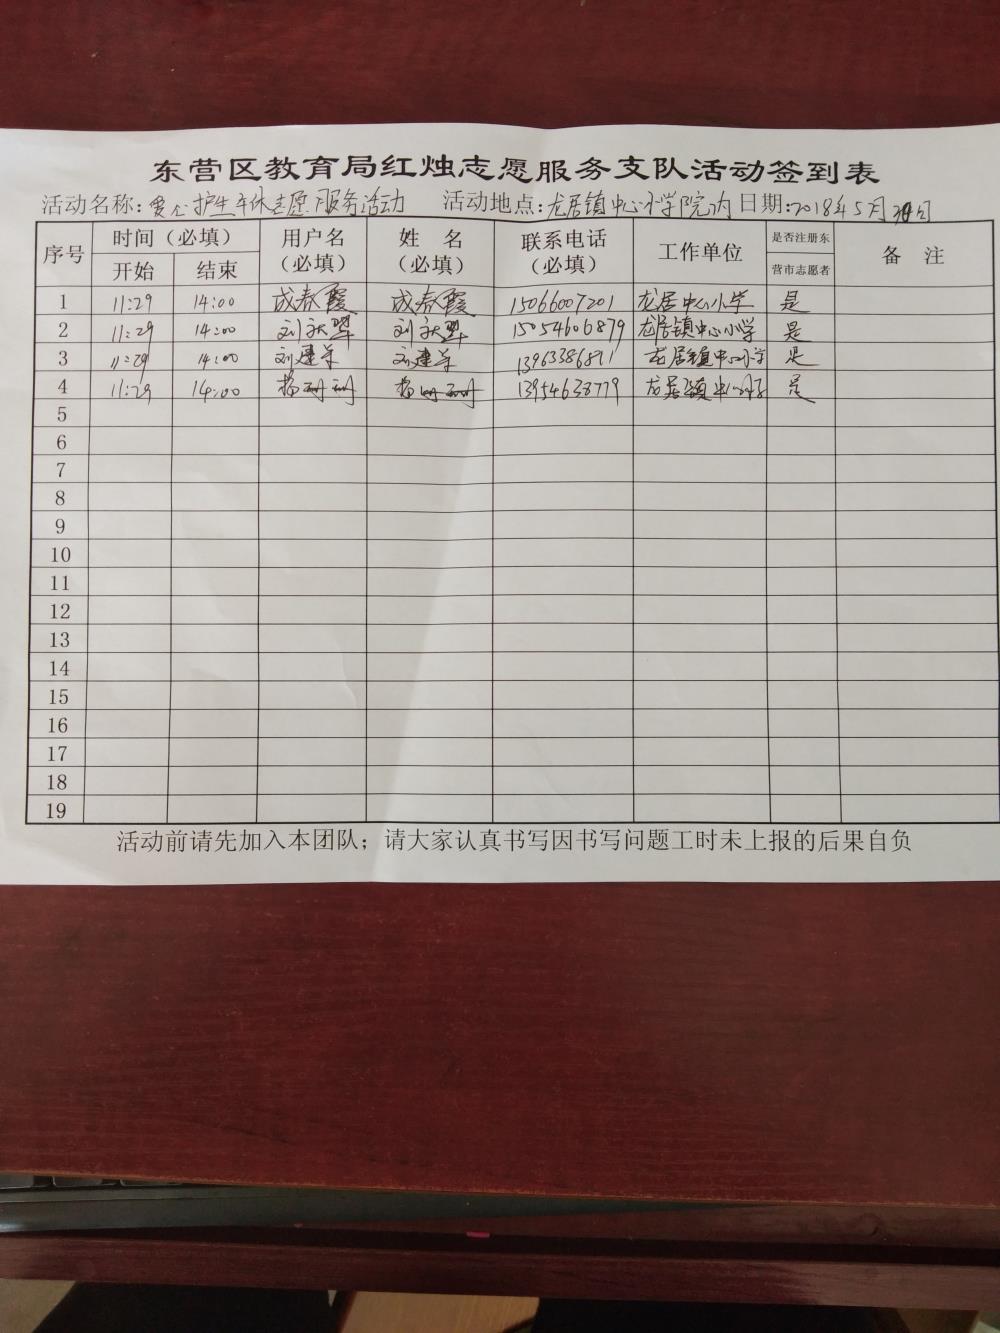 东营区教育局红烛志愿服务支队活动签到表
活动名称:爱心护生午休志愿服务活动 活动地点:龙居镇中心小学院内 日期:2018年5月 日
序号 时间（必填） 用户名（必填） 姓 名（必填） 联系电话（必填） 工作单位 是否注册东营市志愿者 备 注
开始 结束
1 11:29 14:00 成春霞 成春霞 15066007201 龙居中心小学 是
2 11:29 14:00 刘 刘 15054606879 龙居镇中心小学 是
3 11:29 14:00 刘建 刘建 13963386811 龙居镇中心小学 是
4 11:29 14:00 杨 杨 13954638779 龙居镇中心小学 是
5
6
7
8
9
10
11
12
13
14
15
16
17
18
19
活动前请先加入本团队；请大家认真书写因书写问题工时未上报的后果自负